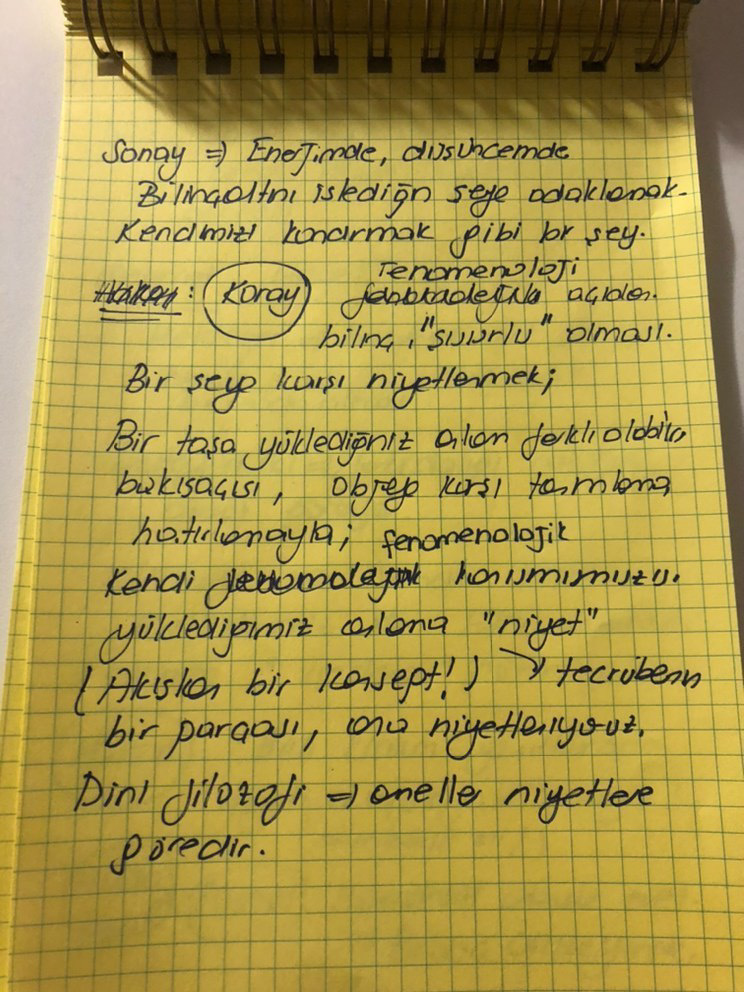 Sonay => Enerjimde, düşüncemde
Bilinçaltını istediğn şeye odaklamak.
Kendimizi kandırmak gibi bir şey.
Fenomenoloji
: Koray açıdan.
bilinç, "şuurlu" olması.
Bir şeye karşı niyetlenmek;
Bir taşa yüklediğiniz anlam farklı olabilir,
bakışaçısı, objeye karşı tanımlama
hatırlamayla; fenomenolojik
Kendi konumumuzu.
yüklediğimiz anlama "niyet"
(Akışkan bir konsept!) → tecrübenin
bir parçası, ona niyetleniyoruz.
Dini filozofi => ameller niyetlere
göredir.